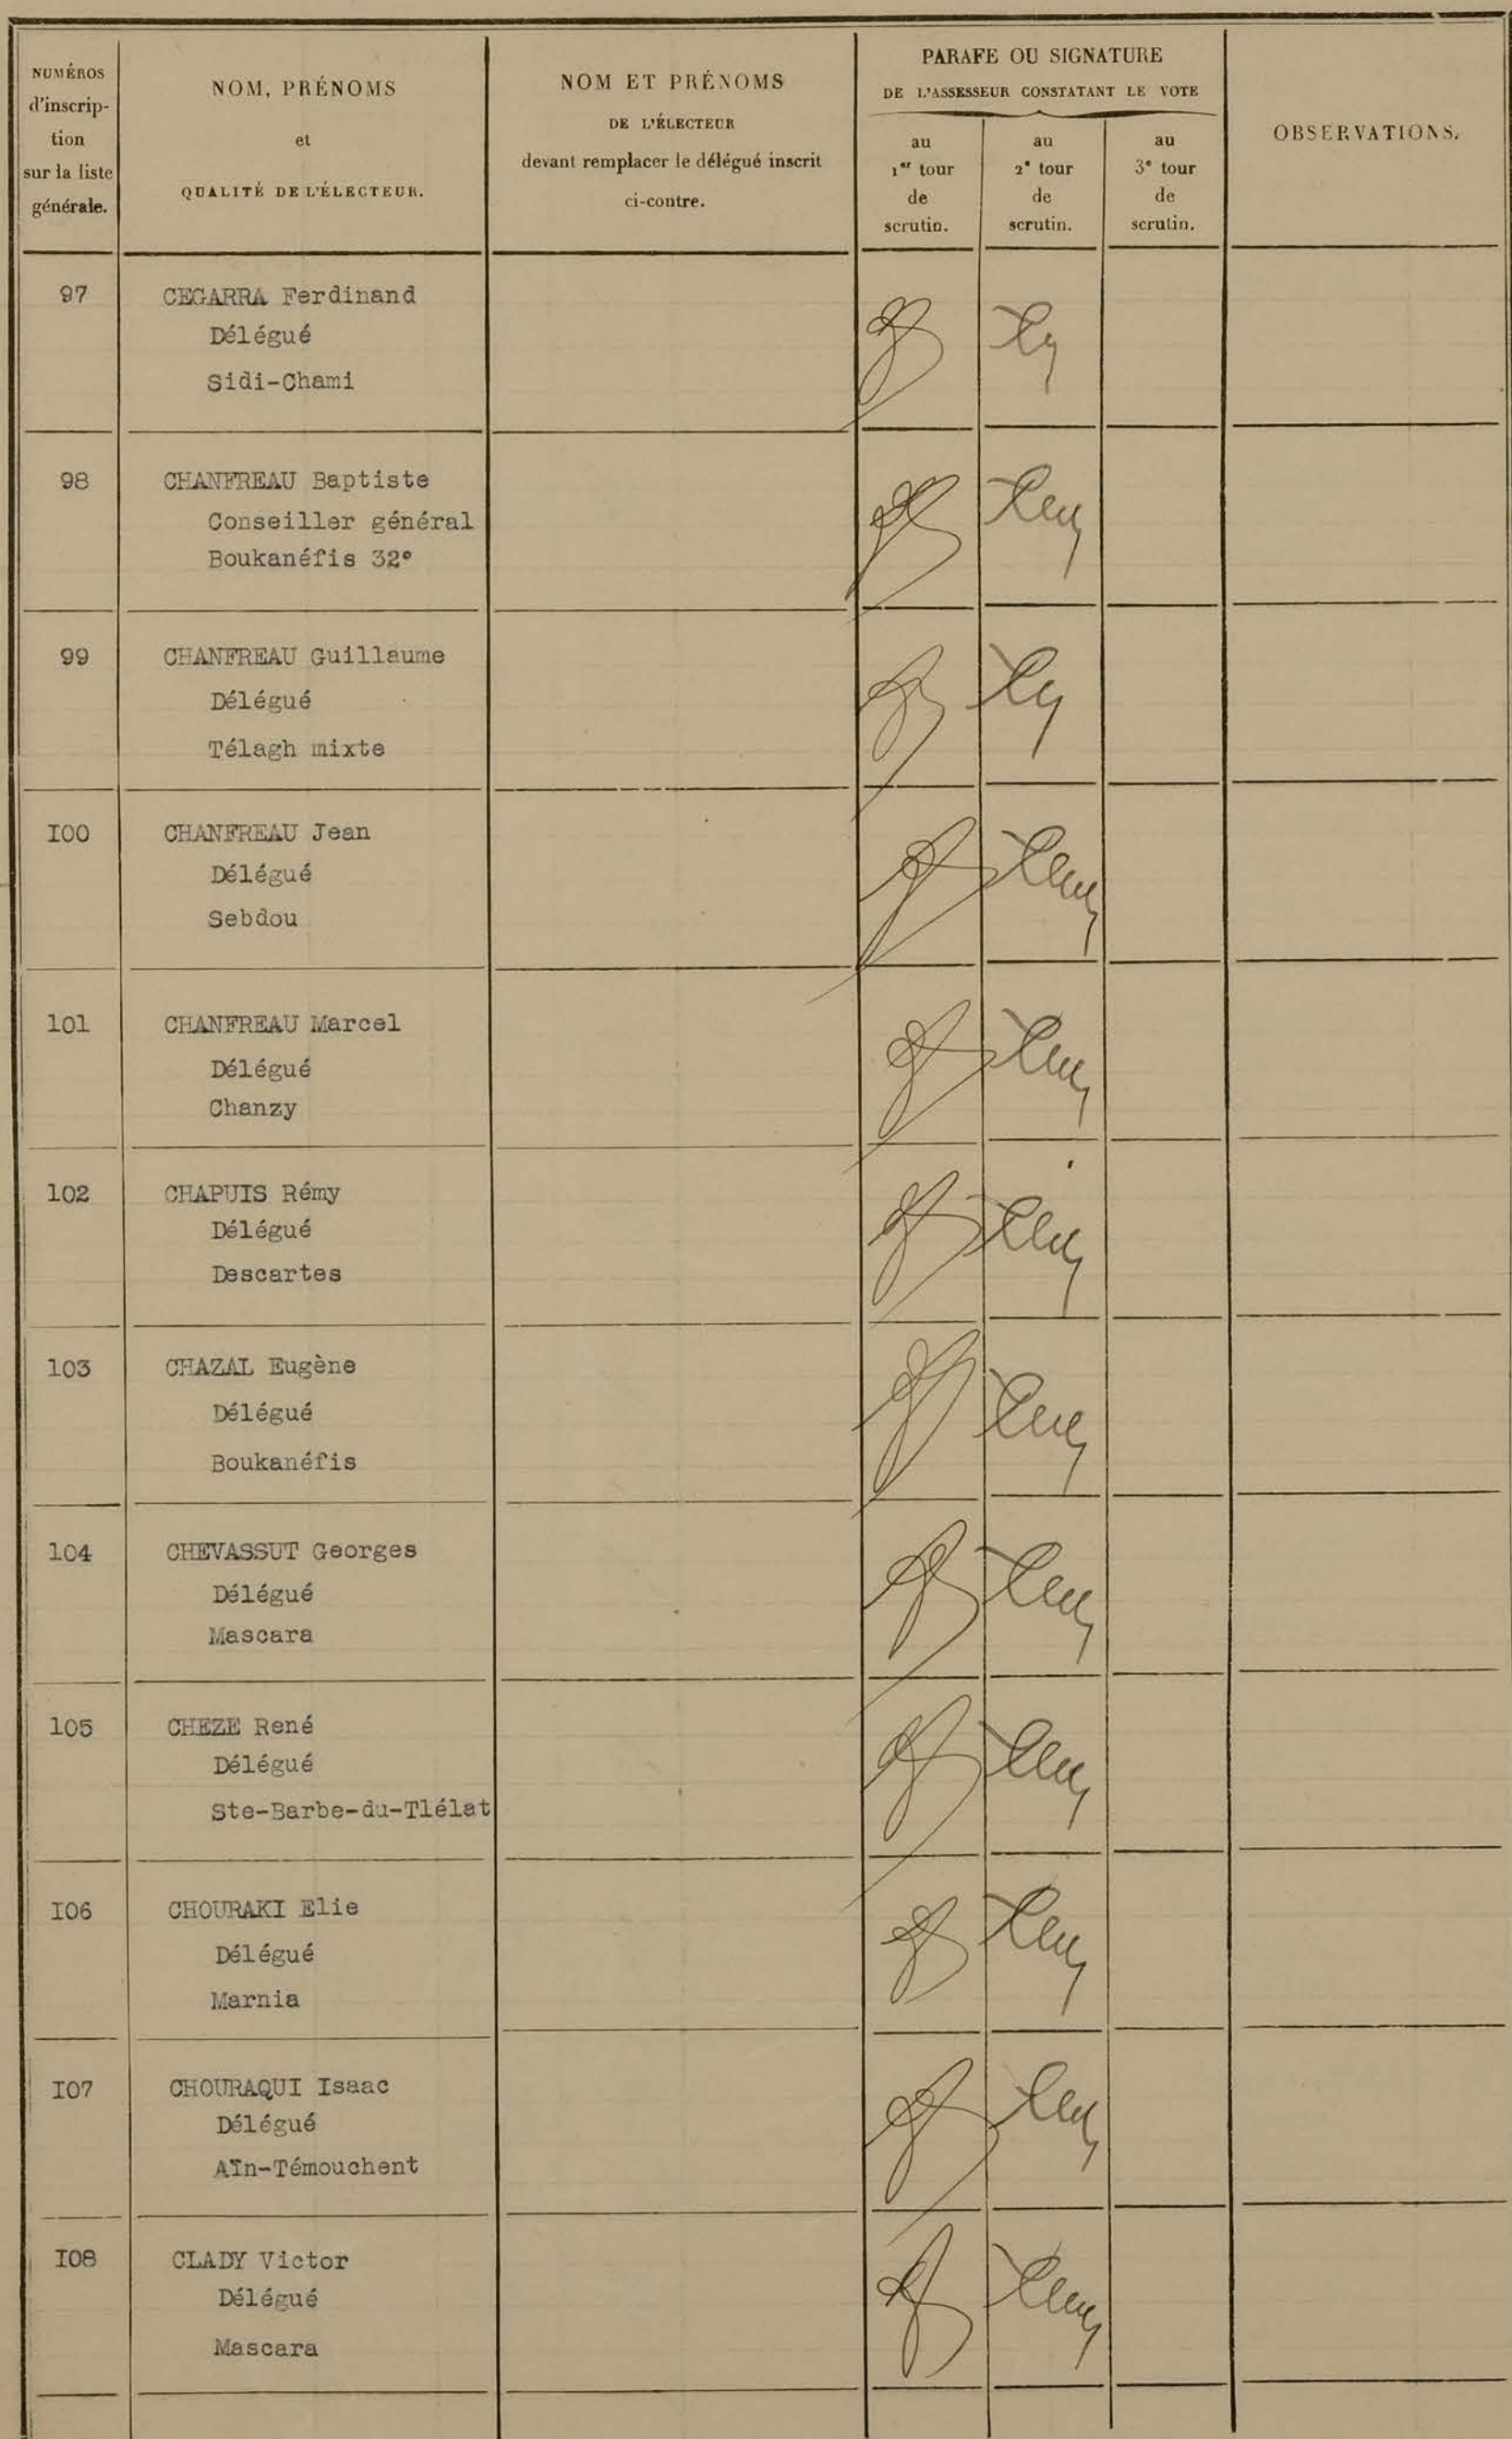 NUMÉROS
d'inscrip-
tion
sur la liste
générale.
NOM, PRÉNOMS
et
QUALITÉ DE L'ÉLECTEUR.
NOM ET PRÉNOMS
DE L'ÉLECTEUR
devant remplacer le délégué inscrit
ci-contre.
PARAFE OU SIGNATURE
DE L'ASSESSEUR CONSTATANT LE VOTE
au
1er tour
de
scrutin.
au
2e tour
de
scrutin.
au
3e tour
de
scrutin.
OBSERVATIONS.
97
CEGARRA Ferdinand
Délégué
Sidi-Chami
98
CHANFREAU Baptiste
Conseiller général
Boukanéfis 32°
99
CHANFREAU Guillaume
Délégué
Télagh mixte
I00
CHANFREAU Jean
Délégué
Sebdou
101
CHANFREAU Marcel
Délégué
Chanzy
102
CHAPUIS Rémy
Délégué
Descartes
103
CHAZAL Eugène
Délégué
Boukanéfis
104
CHEVASSUT Georges
Délégué
Mascara
105
CHEZE René
Délégué
Ste-Barbe-du-Tlélat
I06
CHOURAKI Elie
Délégué
Marnia
I07
CHOURAQUI Isaac
Délégué
Aïn-Témouchent
I08
CLADY Victor
Délégué
Mascara